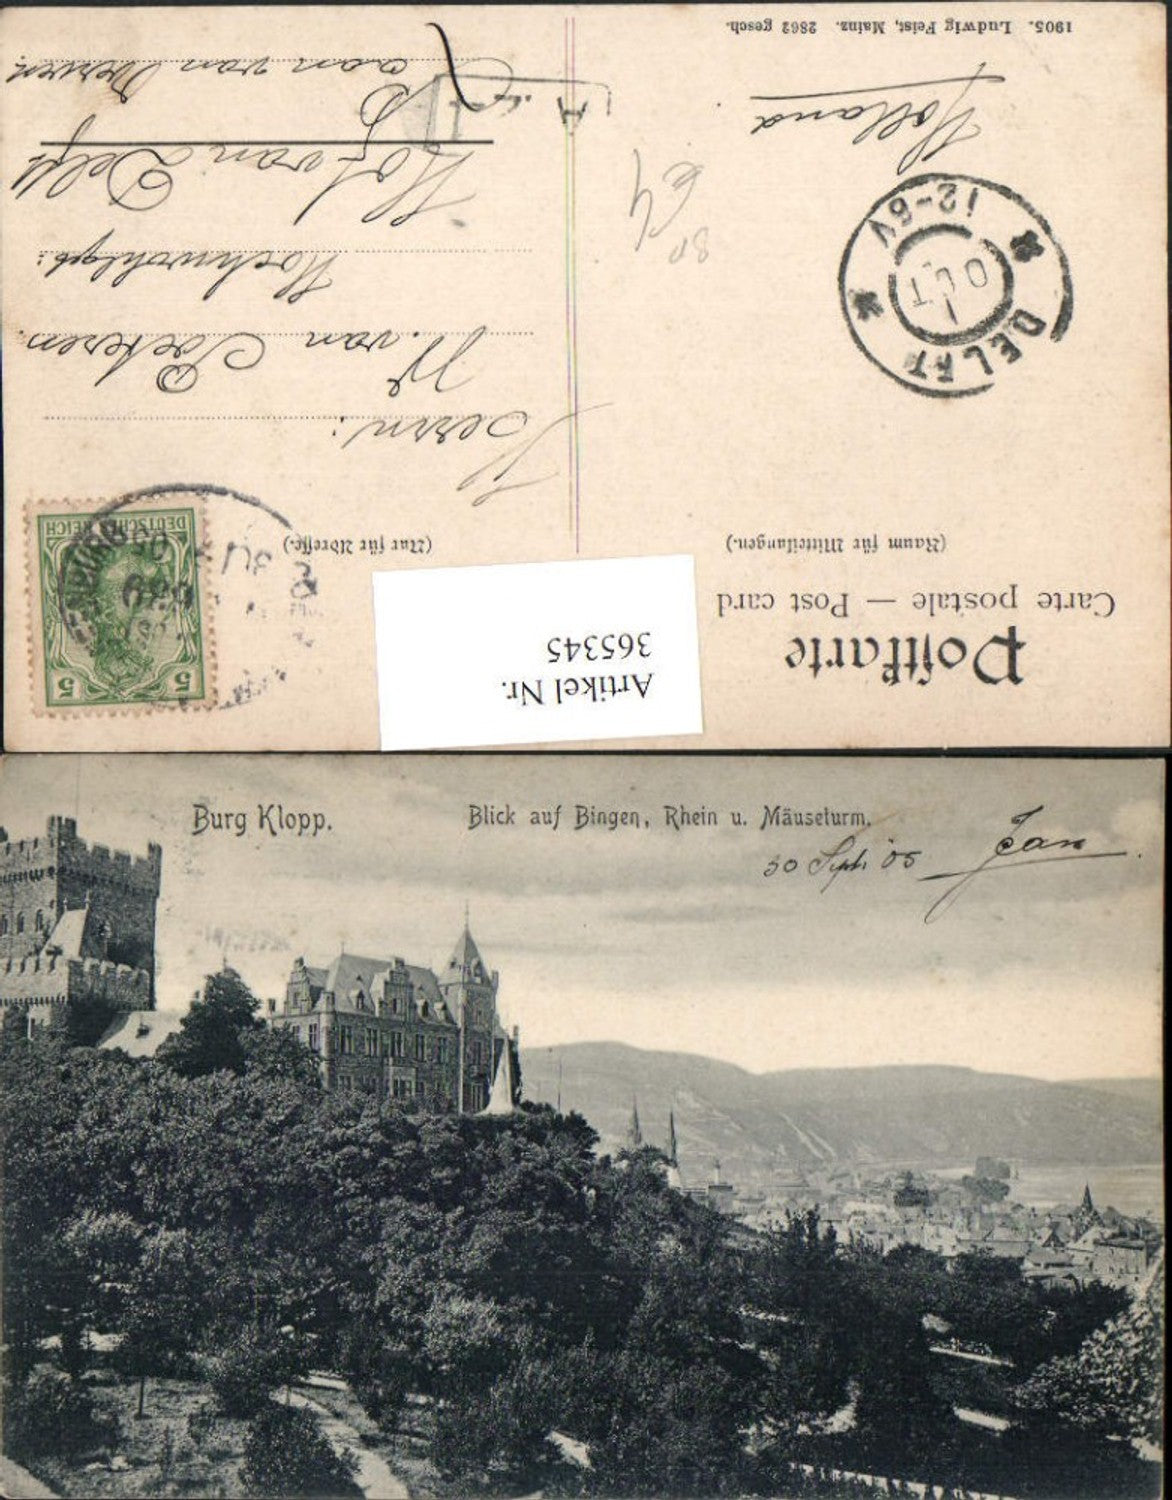 Postkarte
Carte postale — Post card
(Raum für Mitteilungen.)
(Nur für Adresse.)
Artikel Nr.
365345
DEUTSCHES REICH
5 5
DELFT
1 OCT
12-6V
Herrn:
W. van
Hochwohlgb:
Hof van Delft
Laan van
Holland
1905. Ludwig Feist, Mainz. 2862 gesch.
Burg Klopp. Blick auf Bingen, Rhein u. Mäuseturm.
30 Sept. 05 Jan